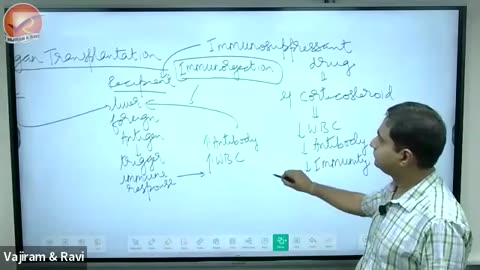 Vajiram & Ravi
gan Transplantation
Immunosuppressant
drug
Recipient
Immunorejection
liver
foreign
Antigen
trigger
immune
response
↑ Antibody
↑ WBC
eg corticosteroid
↓ WBC
↓ Antibody
↓ Immunity
Vajiram & Ravi